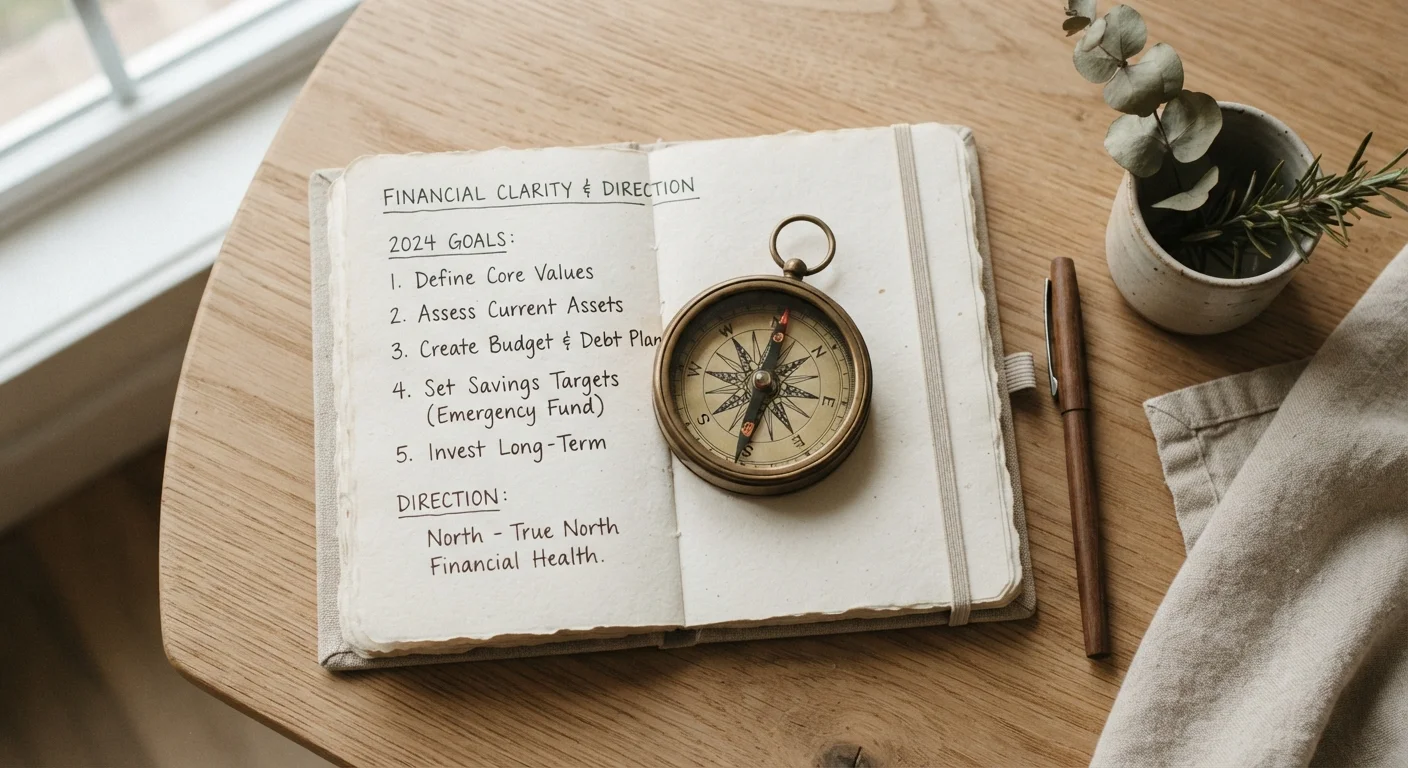 FINANCIAL CLARITY & DIRECTION
2024 GOALS:
1. Define Core Values
2. Assess Current Assets
3. Create Budget & Debt Plan
4. Set Savings Targets
(Emergency Fund)
5. Invest Long-Term
DIRECTION:
North - True North
Financial Health.
N
N
W
W
E
S
S
E